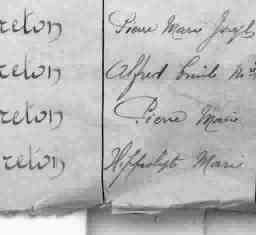 reton Pierre Marie Joseph
reton Alfred Emile M
reton Pierre Marie
reton Hippolyte Marie